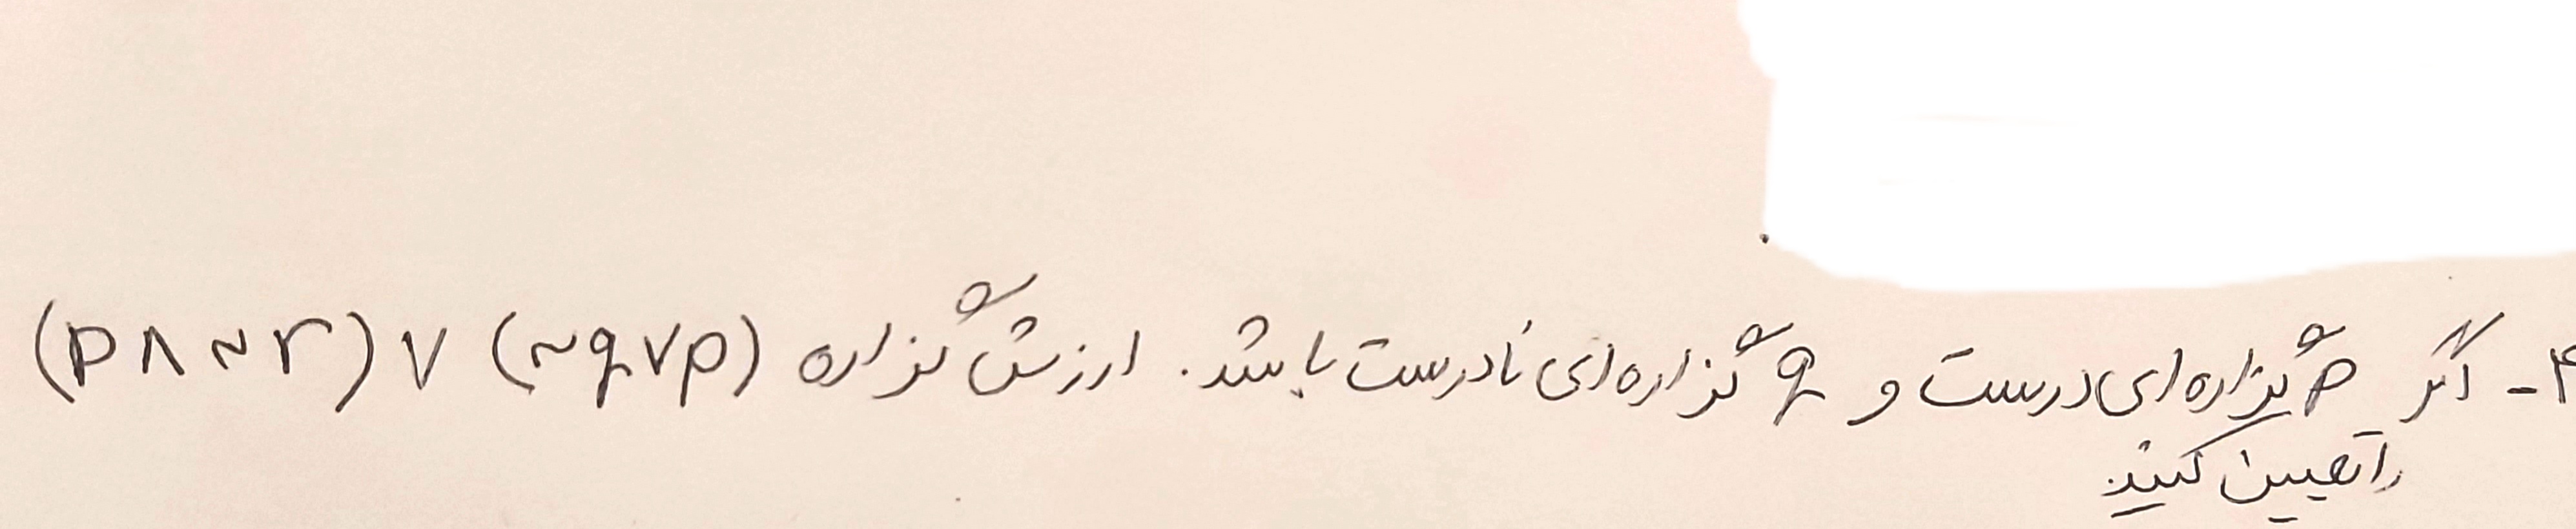 ۴- اگر p گزاره‌ای درست و q گزاره‌ای نادرست باشد. ارزش گزاره (p ∧ ~r) ∨ (~q ∨ p)
را تعیین کنید.